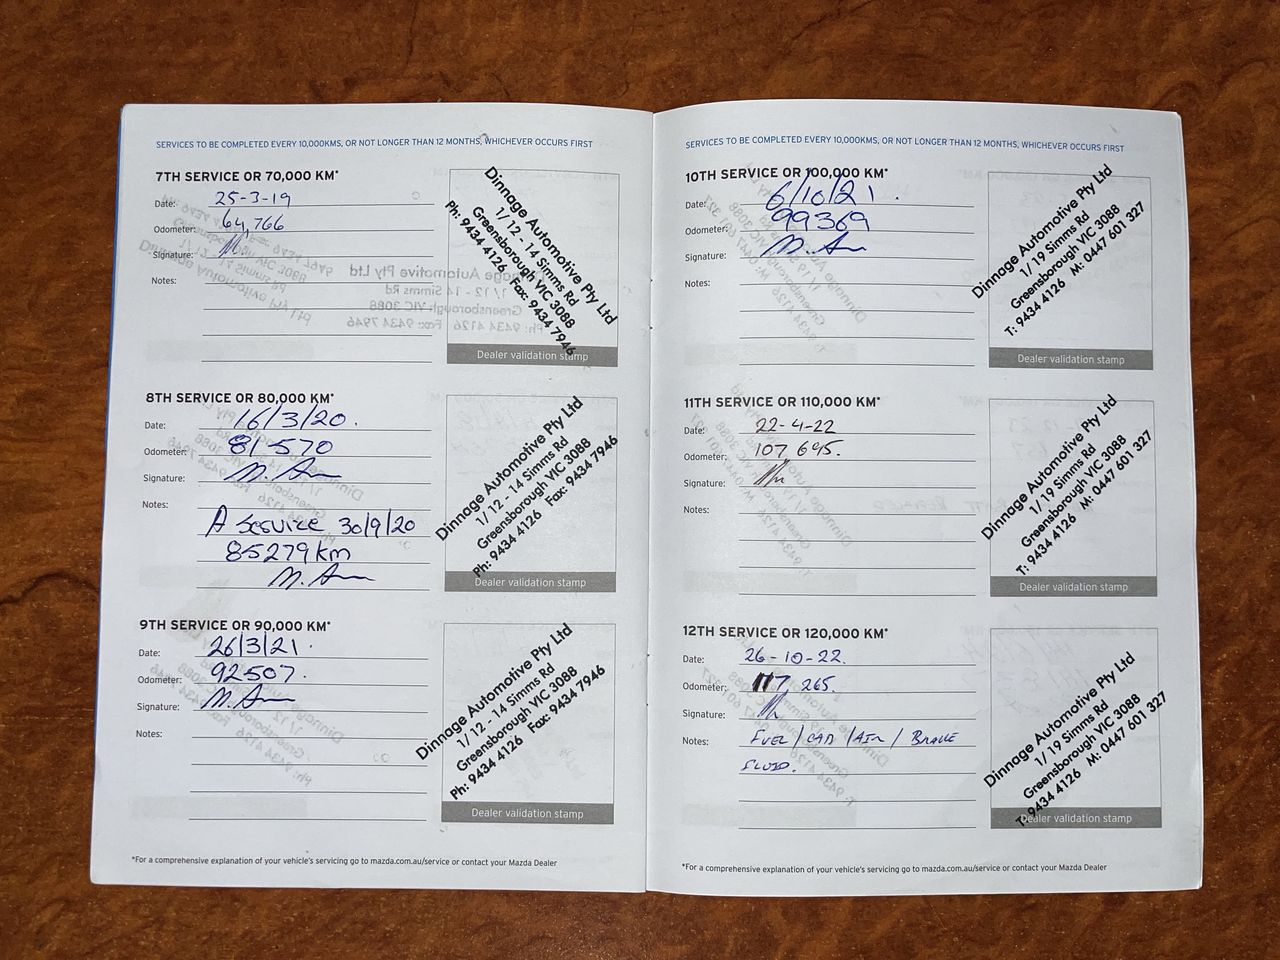 SERVICES TO BE COMPLETED EVERY 10,000KMS, OR NOT LONGER THAN 12 MONTHS, WHICHEVER OCCURS FIRST
7TH SERVICE OR 70,000 KM*
Date: 25-3-19
Odometer: 64,766
Signature:
Notes:
Dinnage Automotive Pty Ltd
1/12 - 14 Simms Rd
Greensborough VIC 3088
Ph: 9434 4126 Fax: 9434 7946
Dealer validation stamp
8TH SERVICE OR 80,000 KM*
Date: 16/3/20.
Odometer: 81-570
Signature:
Notes:
A Service 30/9/20
85279km
Dinnage Automotive Pty Ltd
1/12 - 14 Simms Rd
Greensborough VIC 3088
Ph: 9434 4126 Fax: 9434 7946
Dealer validation stamp
9TH SERVICE OR 90,000 KM*
Date: 26/3/21.
Odometer: 92507.
Signature:
Notes:
Dinnage Automotive Pty Ltd
1/12 - 14 Simms Rd
Greensborough VIC 3088
Ph: 9434 4126 Fax: 9434 7946
Dealer validation stamp
*For a comprehensive explanation of your vehicle's servicing go to mazda.com.au/service or contact your Mazda Dealer
SERVICES TO BE COMPLETED EVERY 10,000KMS, OR NOT LONGER THAN 12 MONTHS, WHICHEVER OCCURS FIRST
10TH SERVICE OR 100,000 KM*
Date: 6/10/21.
Odometer: 99369
Signature:
Notes:
Dinnage Automotive Pty Ltd
1/19 Simms Rd
Greensborough VIC 3088
T: 9434 4126 M: 0447 601 327
Dealer validation stamp
11TH SERVICE OR 110,000 KM*
Date: 22-4-22
Odometer: 107 695.
Signature:
Notes:
Dinnage Automotive Pty Ltd
1/19 Simms Rd
Greensborough VIC 3088
T: 9434 4126 M: 0447 601 327
Dealer validation stamp
12TH SERVICE OR 120,000 KM*
Date: 26-10-22.
Odometer: 117, 265.
Signature:
Notes: FUEL / CAB / AIR / BRAKE
FLUID.
Dinnage Automotive Pty Ltd
1/19 Simms Rd
Greensborough VIC 3088
T: 9434 4126 M: 0447 601 327
Dealer validation stamp
*For a comprehensive explanation of your vehicle's servicing go to mazda.com.au/service or contact your Mazda Dealer